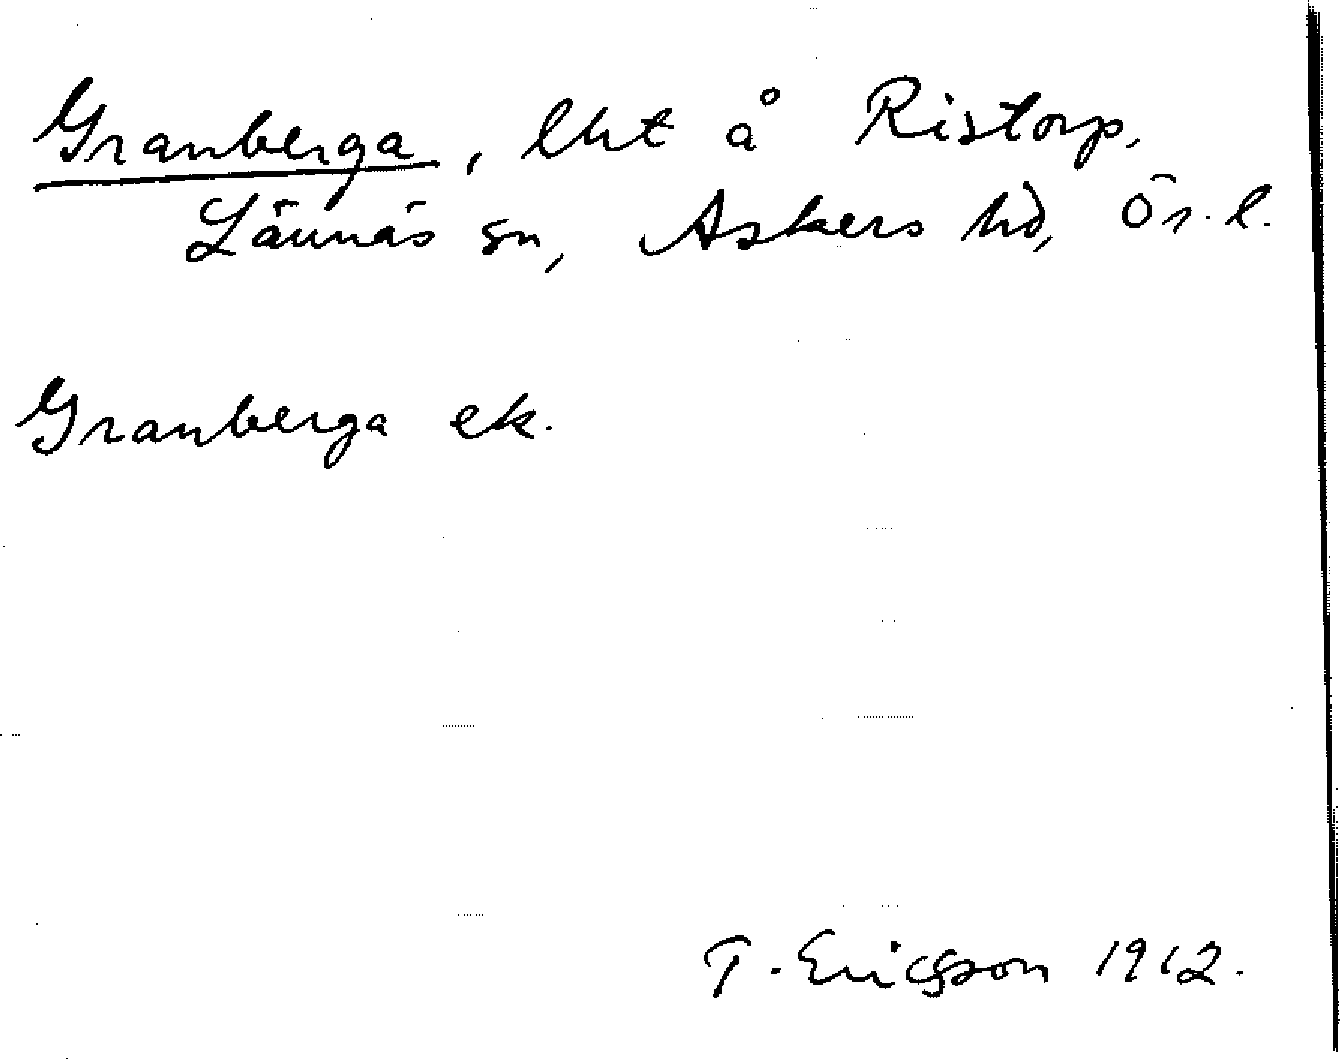 Granberga, lht å Ristorp,
Lännäs sn, Askers hd, Ör. l.
Granberga ek.
T. Ericsson 1912.